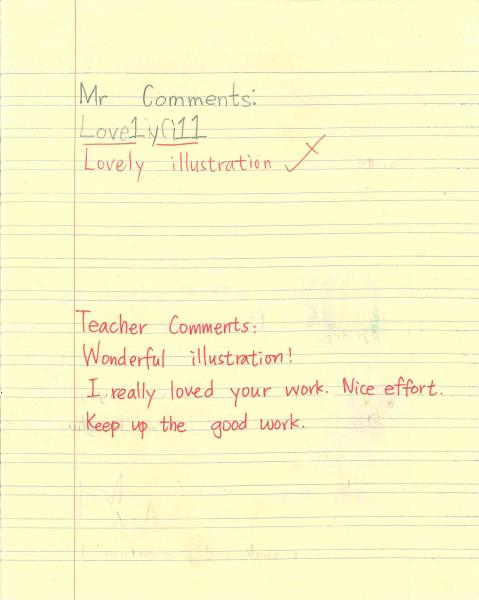 Mr Comments:
Love1y(i11
Lovely illustration
Teacher Comments:
Wonderful illustration!
I really loved your work. Nice effort.
Keep up the good work.